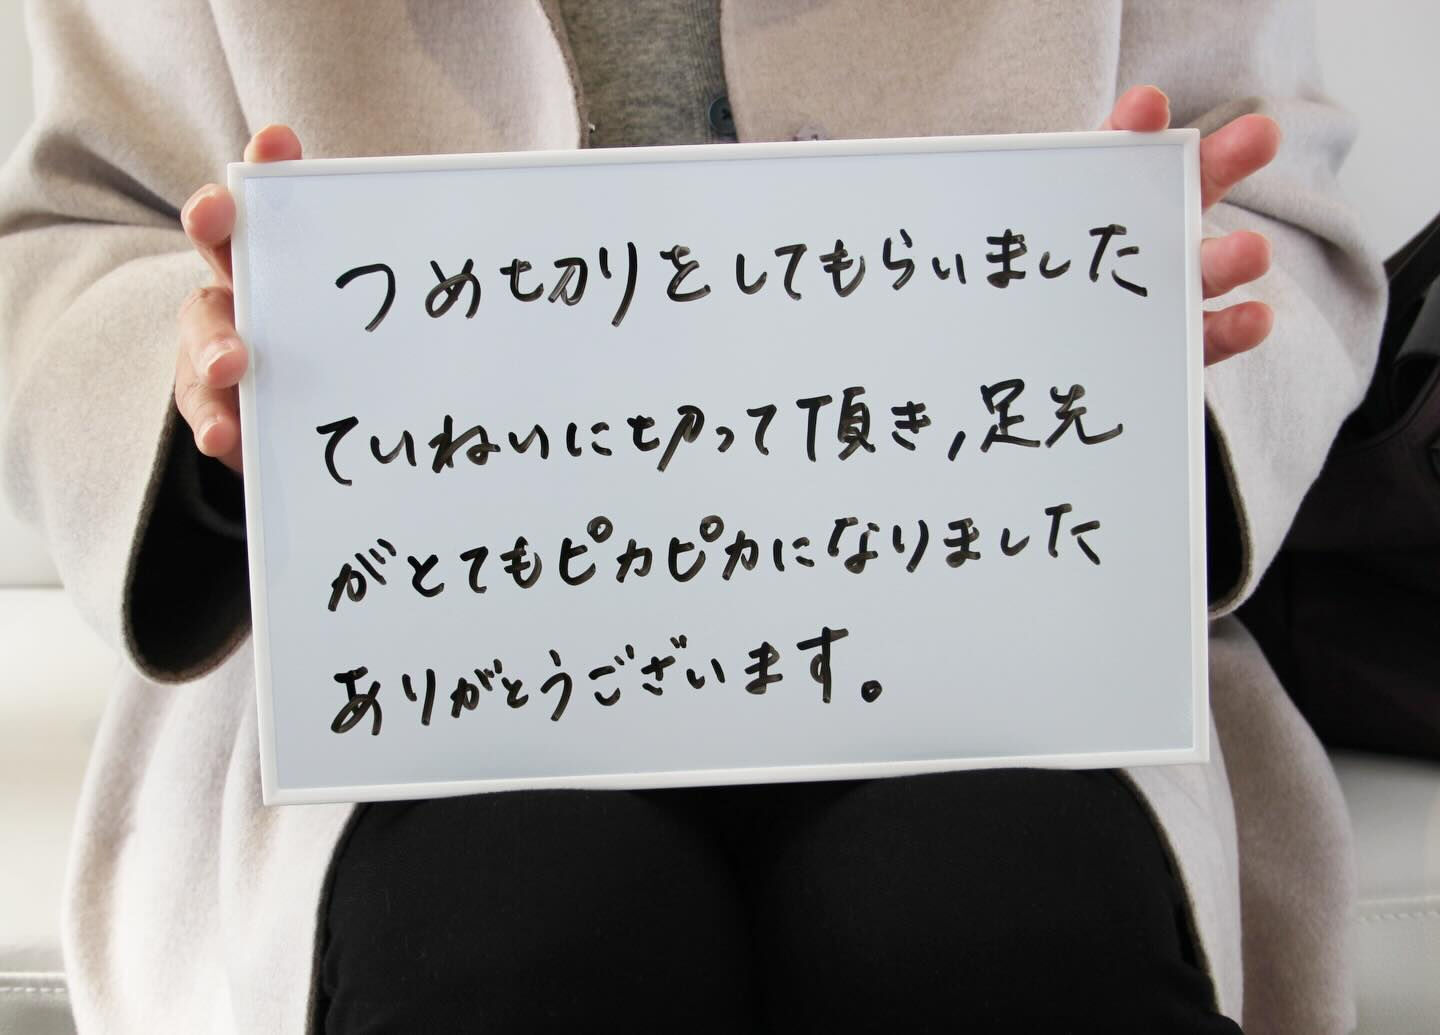 つめ切りをしてもらいました
ていねいに切って頂き,足先
がとてもピカピカになりました
ありがとうございます。